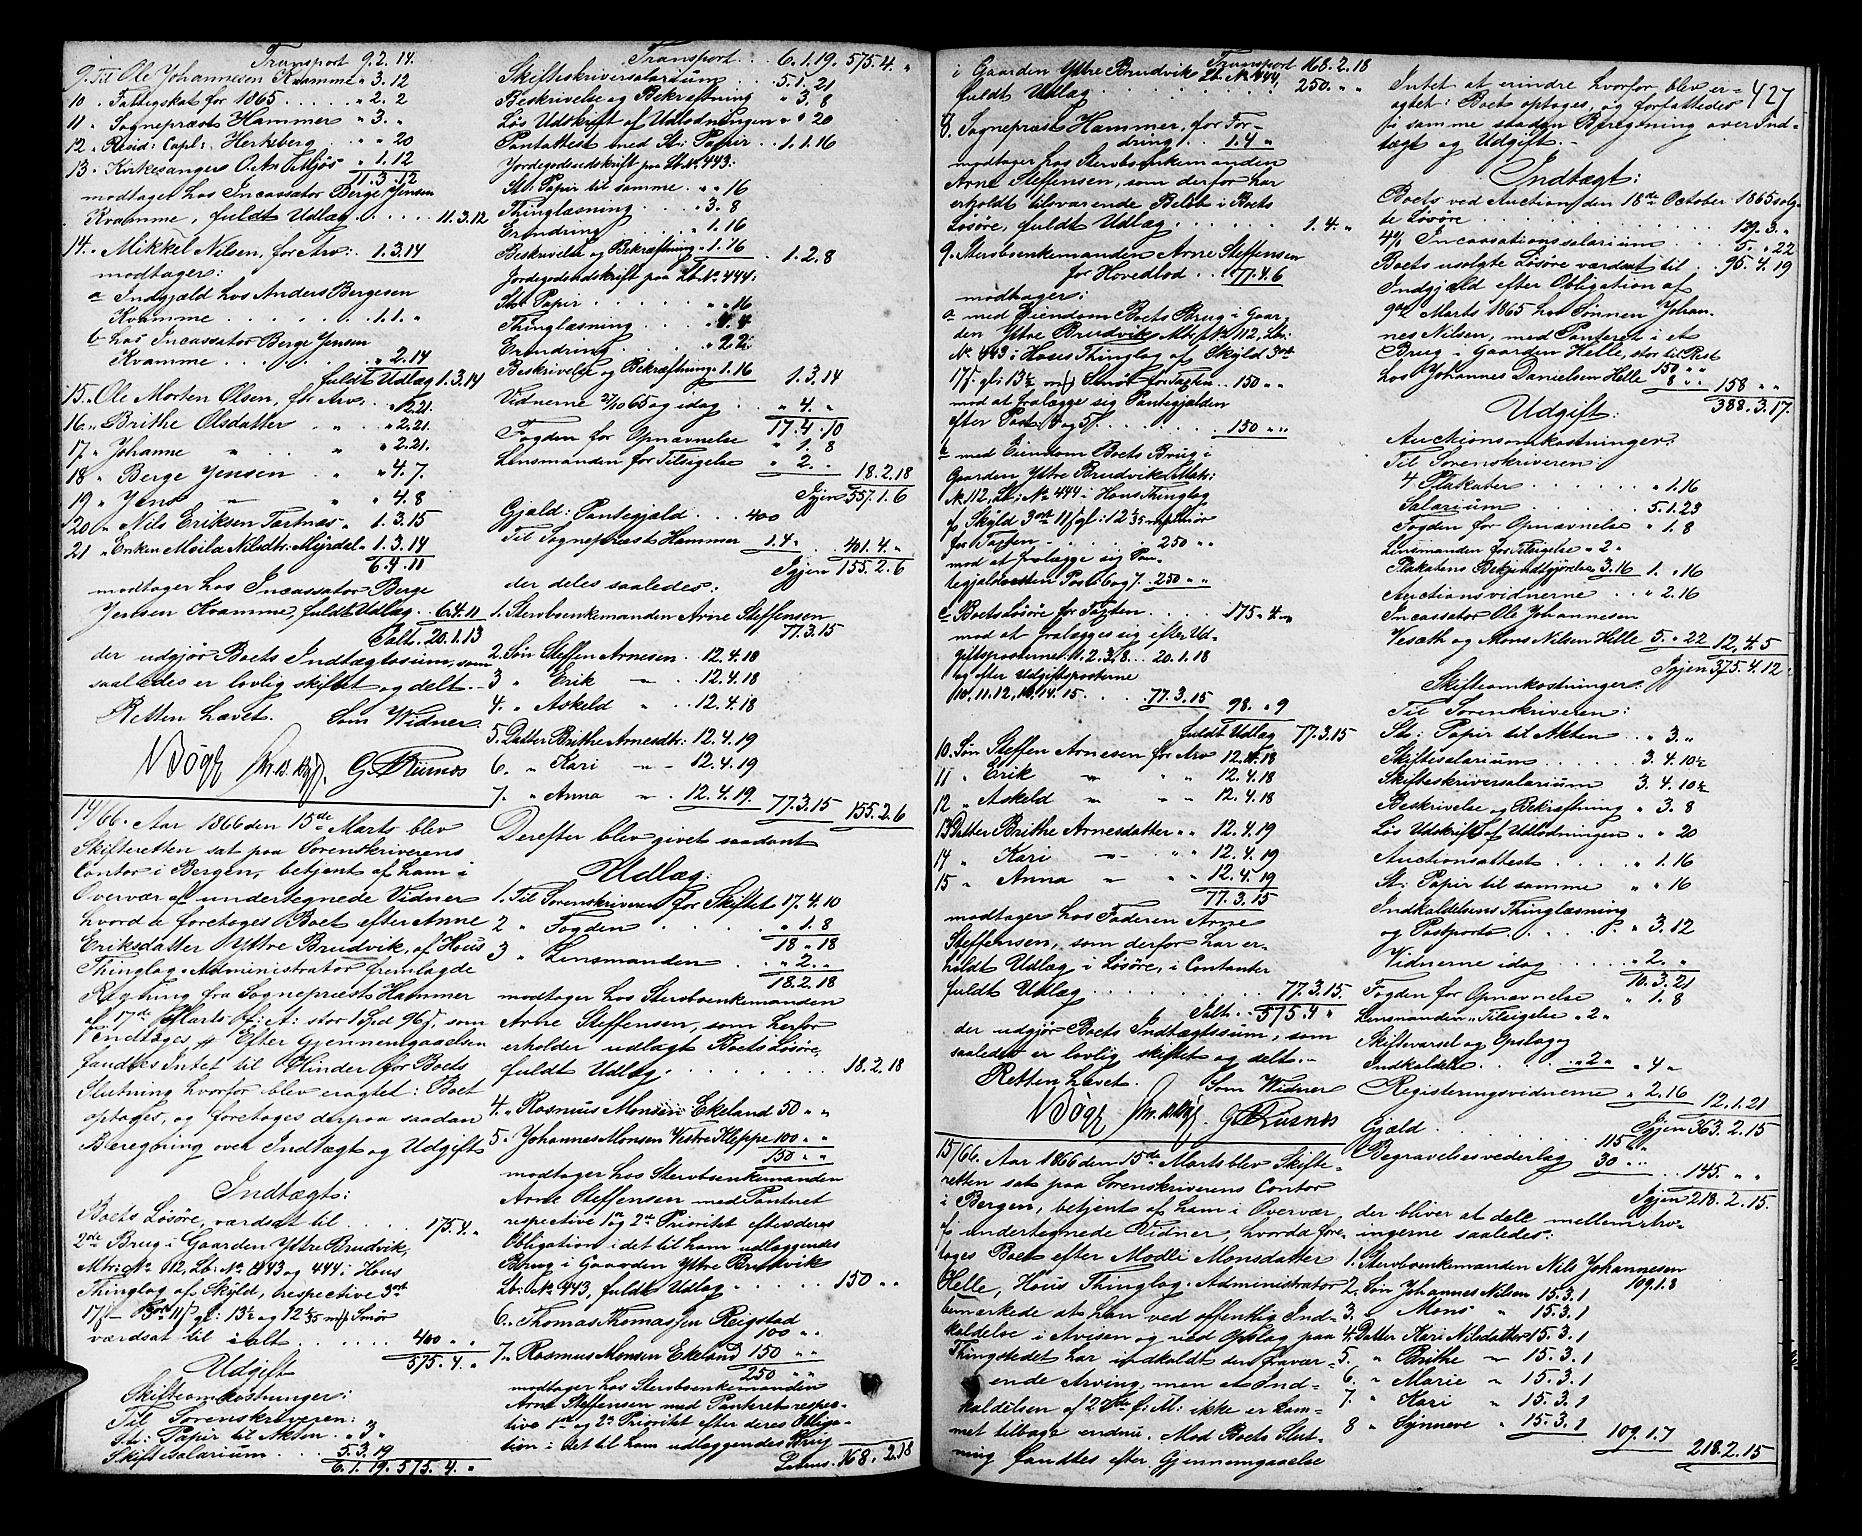 Transport 9.2.14.
9. Til Ole Johannesen Kvamme " 3.12
10 " Fattigskat for 1865 . . . . . " 2. 2
11 " Sognepræst Hammer " 3. "
12 " Resid: Capl: Hertzberg " " 20
13 " Kirkesanger O. A. " 1.12
11.3.12
modtages hos Incassator Berge Jensen
Kvamme, fuldt Udlæg . . . . . 11.3.12
14. " Mikkel Nilsen, for Arv: 1.3.14
modtager:
a Indgjæld hos Anders Bergesen
Kvamme . . . . . . . 1.1. "
b hos Incassator Berge Jensen
Kvamme . . . . . . " 2.14
fuldt Udlæg 1.3.14
15. Ole Morten Olsen, for Arv . . " 2.21.
16. " Brithe Olsdatter . . " " 2.21.
17 " Johanne " . . " " 2.21.
18 " Berge Jensen " " 4.7.
19 " Jens " " " 4.8
20 " Nils Eriksen Tartnæs " 1.3.15
21 " Enken Moila Nilsdtr: Myrdal " 1.3.14
6.4.11
modtager hos Incassator Berge
Jensen Kvamme, fuldt Udlæg . . 6.4.11
Talt. 20.1.13
der udgjør Boets Indtægtssum, som
saaledes er lovlig skiftet og delt.
Retten hævet. Som Vidner
14/66. Aar 1866 den 15de Marts blev
Skifteretten sat paa Sorenskriverens
Contor i Bergen, betjent af ham i
Overvær af undertegnede Vidner
hvorda foretoges Boet efter Anne
Eriksdatter Yttre Brudvik, af Hous
Thinglag. Administrator fremlagde
Regning fra Sognepræst Hammer
af 17de Marts f: A: stor 1 Spd 96 s, som
indtoges. Efter Gjennemgaaelsen
fandtes Intet til Hinder for Boets
Slutning hvorfor blev eragtet: Boet
optages, og foretoges derpaa saadan
Beregning over Indtægt og Udgift
Indtægt:
Boets Løsøre, værdsat til . . . . 175.4. "
2de Brug i Gaarden Yttre Brudvik,
Mtr: No 112, Lb: No 443 og 444 i Hous
Thinglag af Skyld, respective 3 ort
17 s 3 ort 11 s gl: 13½ og 12 6/35 mrk Smør
værdsat til i alt . . . . . . 400 " "
575.4. "
Udgift
Skifteomkostninger:
Til Sorenskriveren:
St: Papir til Akten . . " 3 "
Skiftesalarium . . . 5.3.19
6.1.19. 575. 4. "
Transport . . . 6.1.19. 575.4. "
Skifteskriversalarium . . . 5.1.21
Beskrivelse og Bekræftning " 3. 8
Løs Udskrift af Udlodningen " " 20
Pantattest med St: Papir . . 1.1.16
Jordegodsudskrift paa Lb: No 443:
St: Papir til samme . " " 16
Thinglæsning . . . . " 3. 8
Erindring . . . . . " 1.16
Beskrivelse og Bekræftning " 1.16
1.2.8
Jordegodsudskrift paa Lb: No 444:
St: Papir . . . . . . " " 16
Thinglæsning . . . . " 4. 4
Erindring . . . . . . " 2 2.
Beskrivelse og Bekræftning " 1.16
1.3.14
Vidnerne 27/10 65 og idag . . " 4. "
17.4.10
Fogden for Opnævnelse " 1. 8
Lensmanden for Tilsigelse " 2. "
18.2.18
Igjen 557.1.6
Gjæld: Pantegjæld . . . 400
Til Sognepræst Hammer 1.4. " 401.4. "
Igjen 155.2.6
der deles saaledes:
1. Stervboenkemanden Arne Steffensen
77.3.15
2. Søn Steffen Arnesen . . 12.4.18
3 " Erik " . 12.4.18
4. " Askeld " . . 12.4.18
5. Datter Brithe Arnesdtr: 12.4.19
6. " Kari " " 12.4.19
7. " Anna " . 12.4.19. 77.3.15 155.2.6
Derefter blev givet saadant
Udlæg:
1. Til Sorenskriveren for Skiftet 17.4.10
2 " Fogden . . . . . . " 1.8
18 " 18
3 " Lensmanden . . . " 2. "
18.2.18
modtager hos Stervboenkemanden
Arne Steffensen, som herfor
erholder udlagt Boets Løsøre,
fuldt Udlæg . . . . . . . . 18.2.18
4. " Rasmus Monsen Ekeland 50 " "
5. " Johannes Monsen Vestre Kleppe 100 " "
150 " "
modtager hos Stervboenkemanden
Arne Steffensen med Panteret
respective 1ste og 2de Prioritet efter deres
Obligation i det til ham udlæggendes
Brug i Gaarden Yttre Brudvik
Lb: No 443, fuldt Udlæg . . . . 150 " "
6. " Thomas Thomassen Reigstad
100 " "
7. " Rasmus Monsen Ekeland 150 " "
250 " "
modtager hos Stervboenkemanden
Arne Steffensen med Panteret respec-
tive 1ste og 2de Prioritet efter deres Obliga-
tion i det til ham udlæggendes Brug
Latus. 168.2.18
Transport 168.2.18
i Gaarden Yttre Brudvik Lb. No 444,
fuldt Udlæg . . . . . . . . 250. " "
8. Sognepræst Hammer, for For-
dring . . 1.4 "
modtager hos Stervboenkemanden
Arne Steffensen, som derfor har
erholdt tilsvarende Beløb i Boets
Løsøre, fuldt Udlæg . . . . . . 1.4. "
9. Stervboenkemanden Arne Steffensen
for Hovedlod . . 77.4.6
modtager:
a med Eiendom Boets Brug i Gaar-
den Yttre Brudvik Mtr: No 112, Lb:
No 443 i Hous Thinglag af Skyld 3 ort
17 s gl: 13½ mrk Smør for Taxten . 150 " "
mod at fralægge sig Pantegjælden
efter Post 4 og 5 . . . . . . 150 " "
b med Eiendom Boets Brug i
Gaarden Yttre Brudvik Mtr:
No 112, Lb: No 444 i Hous Thinglag
af Skyld 3 ort 11 s gl: 12 6/35 mrk Smør
for Taxten . . . . . 250 " "
mod at fralægge sig Pan-
tegjælden efter Post 6 og 7 . 250 " "
c Boets Løsøre for Taxten . . . . 175.4. "
mod at fralægge sig efter Ud-
giftsposterne 1. 2. 3. 8 . . 20.1.18
og efter Udgiftsposterne
10. 11. 12. 13. 14. 15 . . . . 77.3.15 98. " 9
fuldt Udlæg 77.3.15
10. Søn Steffen Arnesen for Arv 12.4.18
11 " Erik " " " 12.4.18
12 " Askeld " " " 12.4.18
13 Datter Brithe Arnesdatter " " 12.4.19
14 " Kari " " " 12.4.19
15 " Anna " " " 12.4.19
77.3.15
modtager hos Faderen Arne
Steffensen, som derfor har er-
holdt Udlæg i Løsøre, i Contanter
fuldt Udlæg . . . . . . . . 77.3.15.
Ialt. 575.4 "
der udgjør Boets Indtægtssum, som
saaledes er lovlig skiftet og delt.
Retten hævet. Som Vidner
15/66. Aar 1866 den 15de Marts blev Skifte-
retten sat paa Sorenskriverens Contor
i Bergen, betjent af ham i Overvær
af undertegnede Vidner, hvorda fore-
toges Boet efter Modli Monsdatter
Helle, Hous Thinglag. Administrator
bemærkede at han ved offentlig Ind-
kaldelse i Avisen og ved Opslag paa
Thingstedet har indkaldt den fravær-
ende Arving, men at Ind-
kaldelsen af 27de f: M: ikke er kom-
met tilbage endnu. Mod Boets Slut-
ning fandtes efter Gjennemgaaelse
427
Intet at erindre hvorfor blev er-
agtet: Boets optages, og forfattedes
paa samme saadan Beregning over Ind-
tægt og Udgift.
Indtægt:
Boets ved Auction den 18de October 1865 solg-
te Løsøre . . . . . . . . . 129.3. "
4 % Incassationssalarium . . . 5. " 22
Boets usolgte Løsøre værdsat til . 95.4.19
Indgjæld efter Obligation af
9de Marts 1865 hos Sønnen Johan-
nes Nilsen, med Panteret i et
Brug i Gaarden Helle, stor til Rest 150 " "
hos Johannes Danielsen Helle 8 " " 158 " "
388.3.17.
Udgift:
Auctionsomkostninger:
Til Sorenskriveren:
4 Plakater . . . . . . " 1.16
Salarium . . . . . . 5.1.23
Fogden for Opnævnelse " 1.8
Lensmanden for Tilsigelse " 2 "
Plakatens Bekjendtgjørelse 3.16 1. " 16
Auctionsvidnerne . . " 2.16
Incassator Ole Johannesen
Vesæth og Mons Nilsen Helle 5. " 22 12.4.5
Igjen 375.4.12.
Skifteomkostninger:
Til Sorenskriveren:
St: Papir til Akten . . " 3. "
Skiftesalarium . . . . . 3.4.10½
Skifteskriversalarium 3.4.10½
Beskrivelse og Bekræftning " 3.8
Løs Udskrift af Udlodningen " " 20
Auctionsattest . . . . . " 1.16
St: Papir til samme " " 16
Indkaldelsens Thinglæsning
og Postporto . . . . . " 3.12
Vidnerne idag . . . . " 2. "
10.3.21
Fogden for Opnævnelse " 1.8
Lensmanden " Tilsigelse " 2 "
Skiftevarsel og Opslag
Indkaldelse . . . . " 2 " " 4 "
Registeringsvidnerne " 2.16 12.1.21
Igjen 363.2.15
Gjæld . . . . . . . . 115 " "
Begravelsesvederlag 30 " " 145. " "
Igjen 218.2.15.
der bliver at dele mellem Arv-
ingerne saaledes:
1. Stervboenkemanden Nils Johannesen
109.1.8
2. Søn Johannes Nilsen 15.3.1
3. " Mons " 15.3.1
4. Datter Kari Nilsdatter 15.3.1
5. " Brithe " 15.3.1
6. " Marie " 15.3.1
7. " Kari " 15.3.1
8 " Synneve " 15.3.1 109.1.7
218.2.15